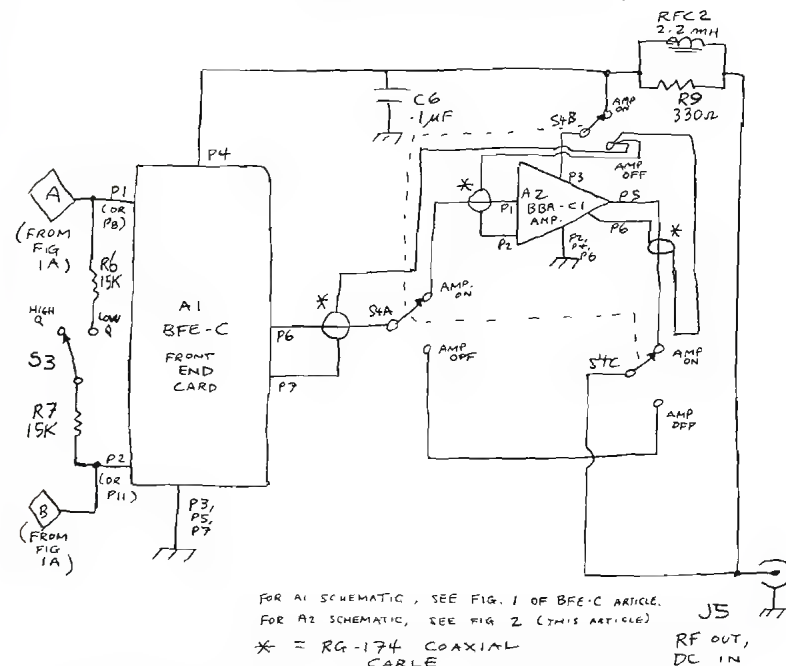 RFC2
2.2 mH
R9
330Ω
C6
.1µF
S4B
AMP
ON
AMP
OFF
P4
A
P1
(OR
P8)
(FROM
FIG
1A)
R6
15K
HIGH
Q
LOW
Q
S3
R7
15K
P2
(OR
P11)
B
(FROM
FIG
1A)
A1
BFE-C
FRONT
END
CARD
P6
P7
P3,
P5,
P7
*
S4A
AMP
ON
AMP
OFF
*
P1
P2
P3
A2
BBA-C1
AMP.
P5
P6
P2, P4,
P6
*
S4C
AMP
ON
AMP
OFF
FOR A1 SCHEMATIC, SEE FIG. 1 OF BFE-C ARTICLE.
FOR A2 SCHEMATIC, SEE FIG 2 (THIS ARTICLE)
* = RG-174 COAXIAL
CABLE
J5
RF OUT,
DC IN